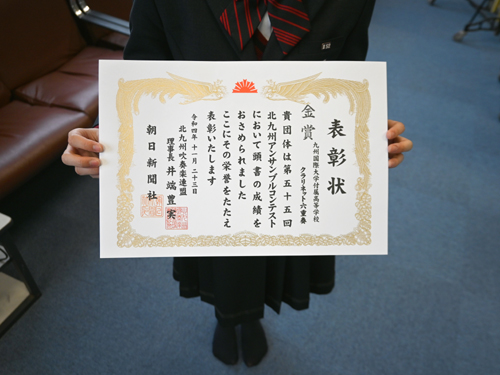 表彰状
金賞
九州国際大学付属高等学校
クラリネット六重奏
貴団体は第五十五回
北九州アンサンブルコンテスト
において頭書の成績を
おさめられました
ここにその栄誉をたたえ
表彰いたします
令和四年十一月二十三日
北九州吹奏楽連盟
理事長 井端豊実
朝日新聞社